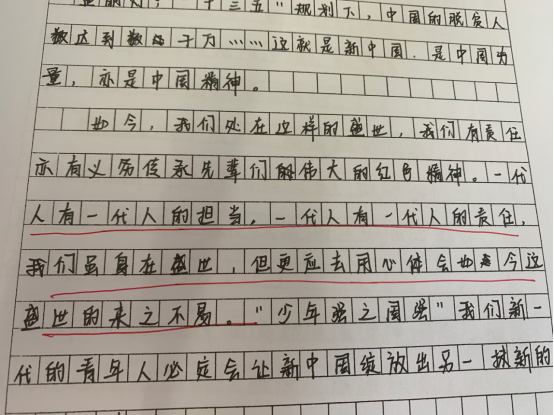 十三五"规划下,中国的脱贫人
数达到数千万……这就是新中国.是中国力
量,亦是中国精神。
如今,我们处在这样的盛世,我们有责任
亦有义务传承先辈们的伟大的红色精神。一代
人有一代人的担当,一代人有一代人的责任,
我们虽身在盛世,但更应去用心体会如今这
盛世的来之不易。"少年强之国强"我们新一
代的青年人必定会让新中国绽放出另一抹新的